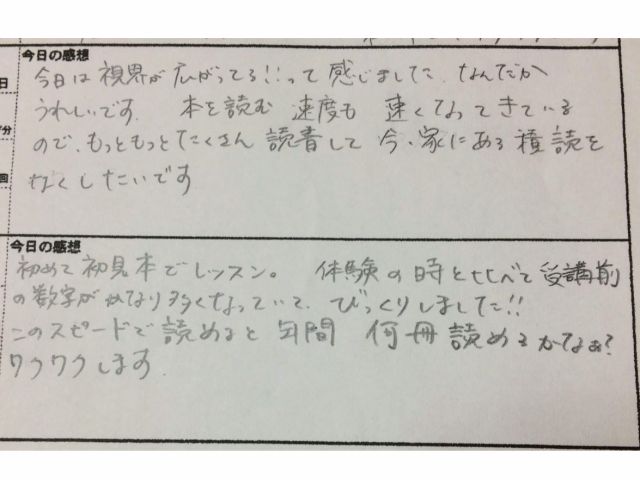 今日の感想
今日は視界が広がってる!!って感じました。なんだか
うれしいです。本を読む速度も速くなってきている
ので、もっともっとたくさん読書して今、家にある積読を
なくしたいです
今日の感想
初めて初見本でレッスン。体験の時と比べて受講前
の数字がかなり多くなっていて、びっくりしました!!
このスピードで読めると年間何冊読めるかなぁ?
ワクワクします。
日
分
回